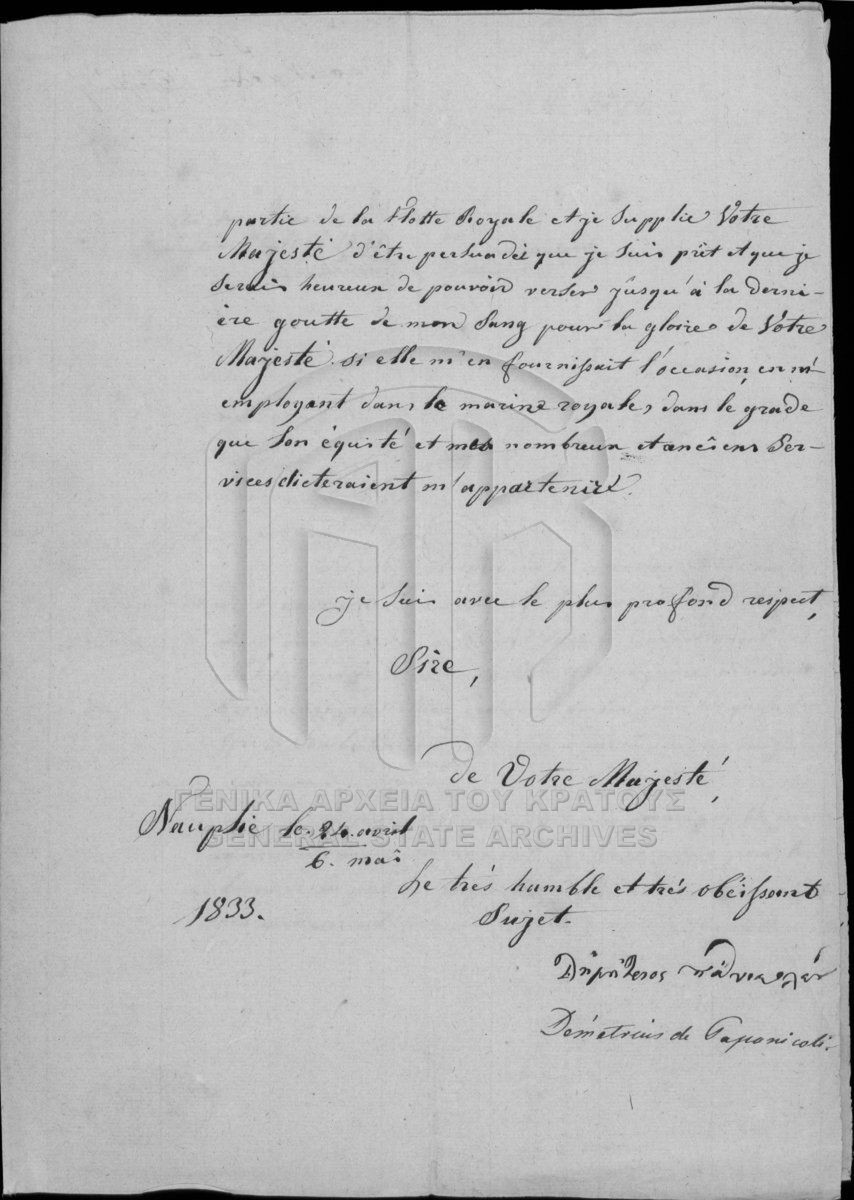 partie de la Flotte Royale et je supplie Votre
Majesté d'être persuadée que je suis prêt et que je
serais heureux de pouvoir verser jûsqu'à la derni-
ère goutte de mon Sang pour la gloire de Vôtre
Majesté si elle m'en fournissait l'occasion, en m'-
employant dans la marine royale, dans le grade
que Son équité et mes nombreux et anciens Ser-
vices dicteraient m'appartenir.
je suis avec le plus profond respect,
Sire,
de Votre Majesté,
ΓΕΝΙΚΑ ΑΡΧΕΙΑ ΤΟΥ ΚΡΑΤΟΥΣ
GENERAL STATE ARCHIVES
Nauplie le 24. avril
6. mai
1833.
Le très humble et très obéissant
Sujet.
Δημήτριος
Démétrius de